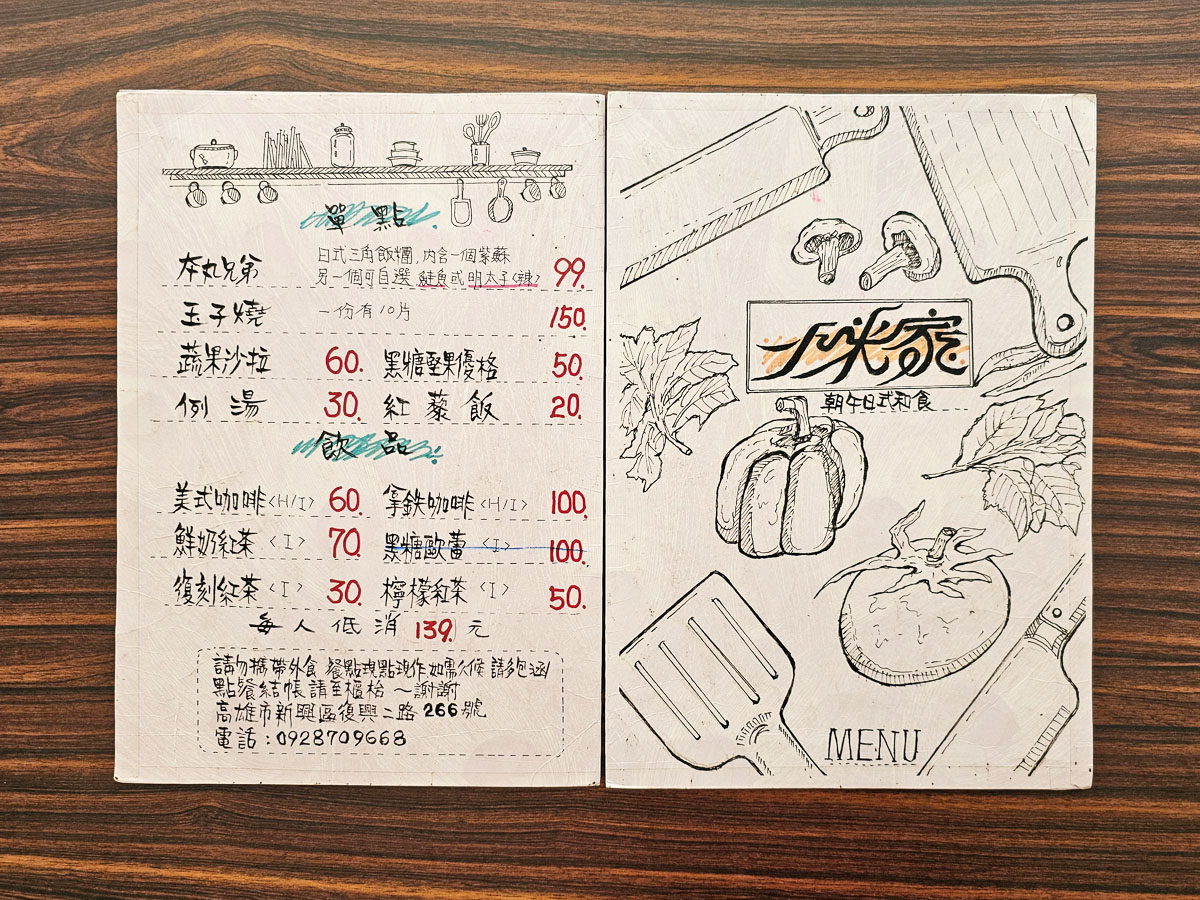 單點
本丸兄弟 日式三角飯糰,內含一個紫蘇 99.
另一個可自選 鮭魚或明太子<辣>
玉子燒 一份有10片 150.
蔬果沙拉 60. 黑糖堅果優格 50.
例湯 30. 紅藜飯 20.
飲品
美式咖啡<H/I> 60. 拿鉄咖啡<H/I> 100.
鮮奶紅茶<I> 70. 黑糖歐蕾<I> 100.
復刻紅茶<I> 30. 檸檬紅茶<I> 50.
每人低消139.元
請勿攜帶外食 餐點現點現作 如需久候 請多包涵
點餐結帳請至櫃枱~謝謝
高雄市新興區復興二路266號
電話:0928709668
米家
朝午日式和食
MENU